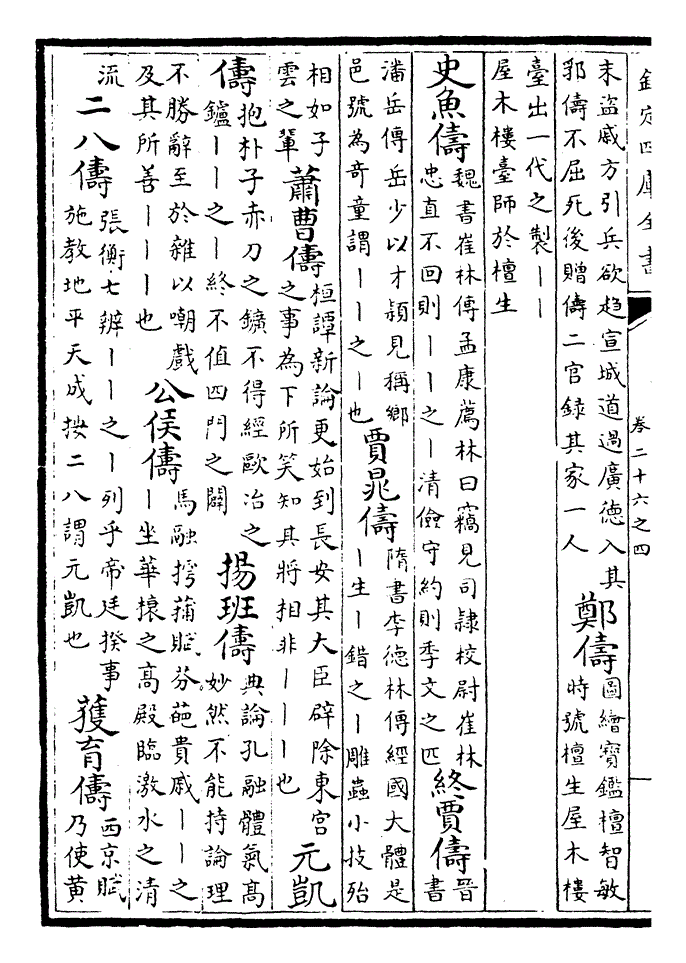 欽定四庫全書 卷二十六之四
末盜戚方引兵欲趋宣城道過廣德入其
郭儔不屈死後贈儔二官録其家一人
鄭儔
圖繪寶鑑檀智敏
時號檀生屋木樓
臺出一代之製丨丨
屋木樓臺師於檀生
史魚儔
魏書崔林傳孟康薦林曰竊見司隷校尉崔林
忠直不回則丨丨之丨清儉守約則季文之匹
終賈儔
晉
書
潘岳傳岳少以才穎見稱鄉
邑號為奇童謂丨丨之丨也
賈晁儔
隋書李德林傳經國大體是
丨生丨錯之丨雕蟲小技殆
相如子
雲之輩
蕭曹儔
桓譚新論更始到長安其大臣辟除東宮
之事為下所笑知其將相非丨丨丨也
元凱
儔
抱朴子赤刀之鑛不得經歐冶之
鑪丨丨之丨終不值四門之闢
揚班儔
典論孔融體氣髙
妙然不能持論理
不勝辭至於雜以嘲戲
及其所善丨丨丨也
公侯儔
馬融摴蒱賦芬葩貴戚丨丨之
丨坐華榱之髙殿臨激水之清
流
二八儔
張衡七辨丨丨之丨列乎帝廷揆事
施教地平天成按二八謂元凱也
獲育儔
西京賦
乃使黄